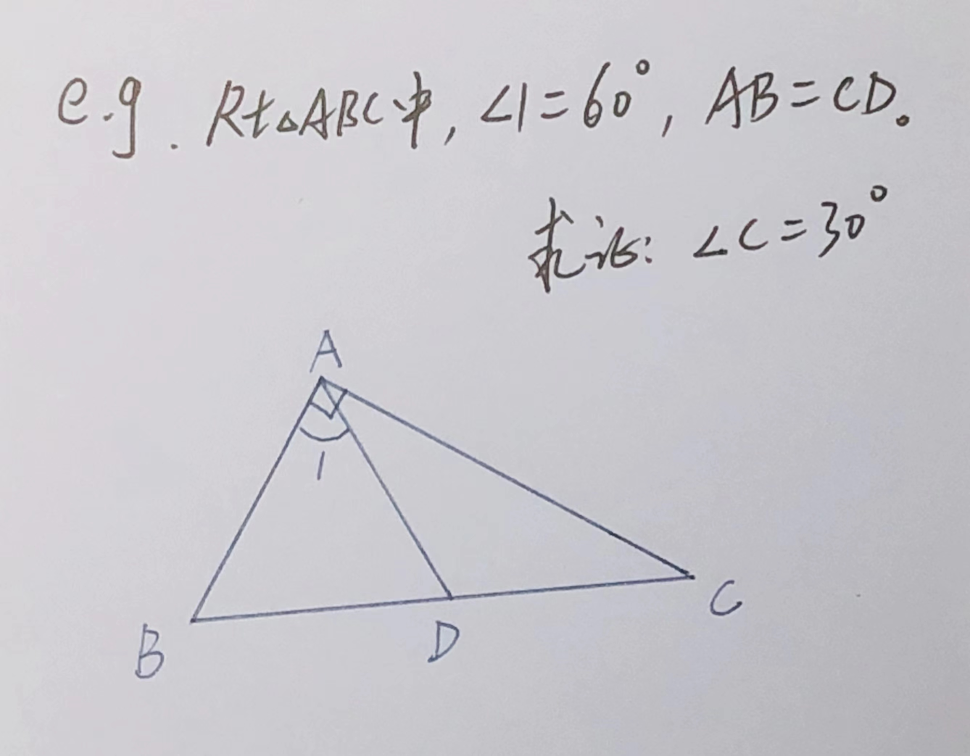 e.g. Rt△ABC中, ∠1=60°, AB=CD。
求证: ∠C=30°
A
1
B
D
C